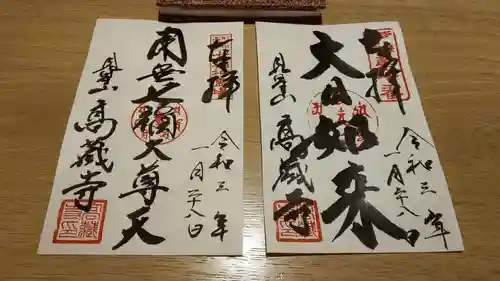 奉拝
令和三年
一月二十八日
大日如来
高蔵寺
奉拝
令和三年
一月二十八日
南無七福大尊天
高蔵寺